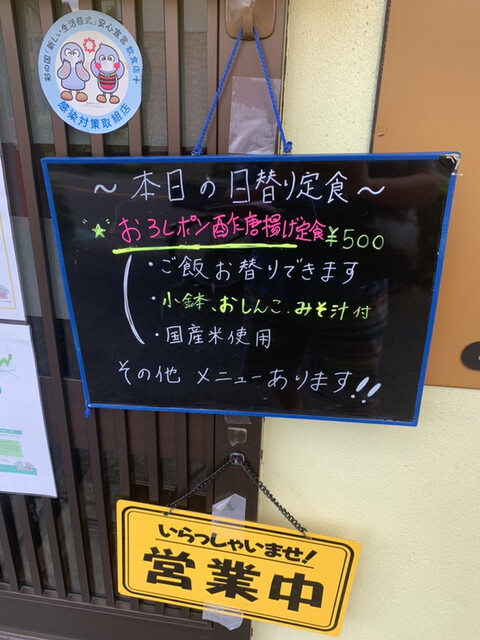 彩の国「新しい生活様式」安心宣言 飲食店+
感染対策取組店
～本日の日替り定食～
★おろしポン酢唐揚げ定食¥500
・ご飯お替りできます
・小鉢、おしんこ、みそ汁付
・国産米使用
その他 メニューあります!!
いらっしゃいませ!
営業中